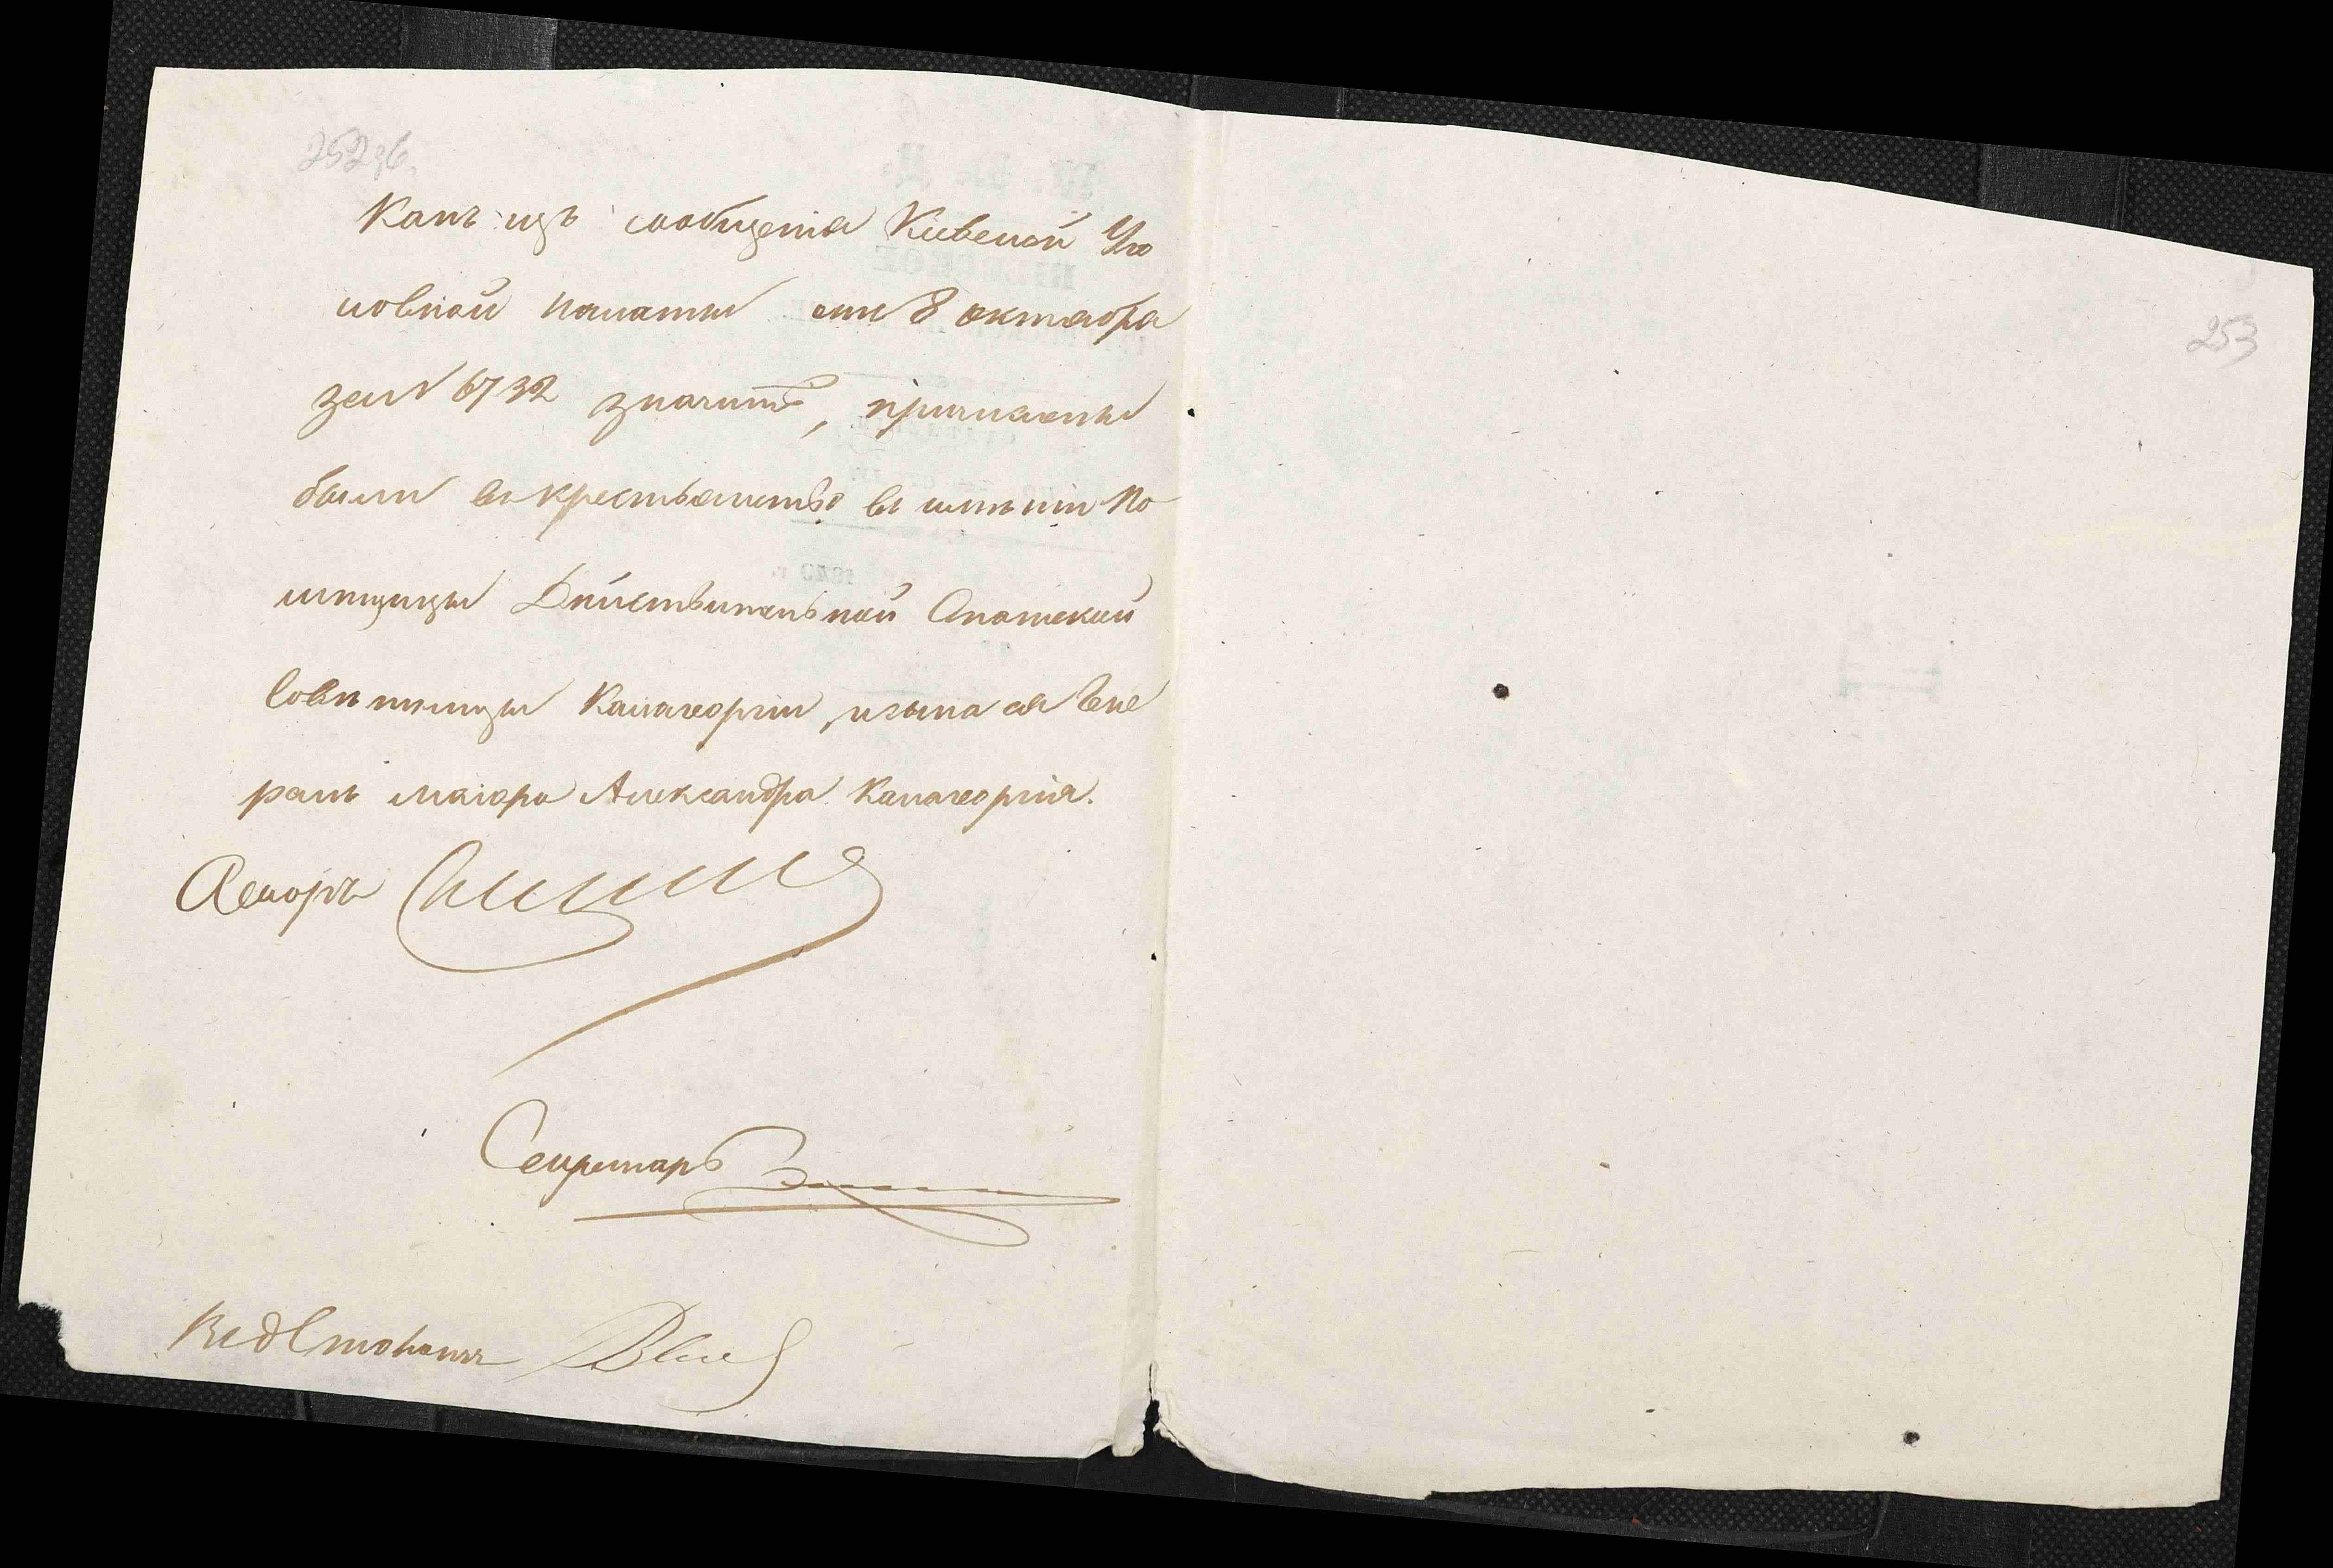 252об.
Какъ изъ сообщенія Кіевской Уго
ловной палаты отъ 8 октября
за № 6732 значитъ, причислены
были въ крестьянство въ имѣніи По
мѣщицы Дѣйствительной Статской
Совѣтницы Капагеоргіи, и сына ея Гене
ралъ маіора Александра Капагеоргія.
Асесоръ
Секретарь
253